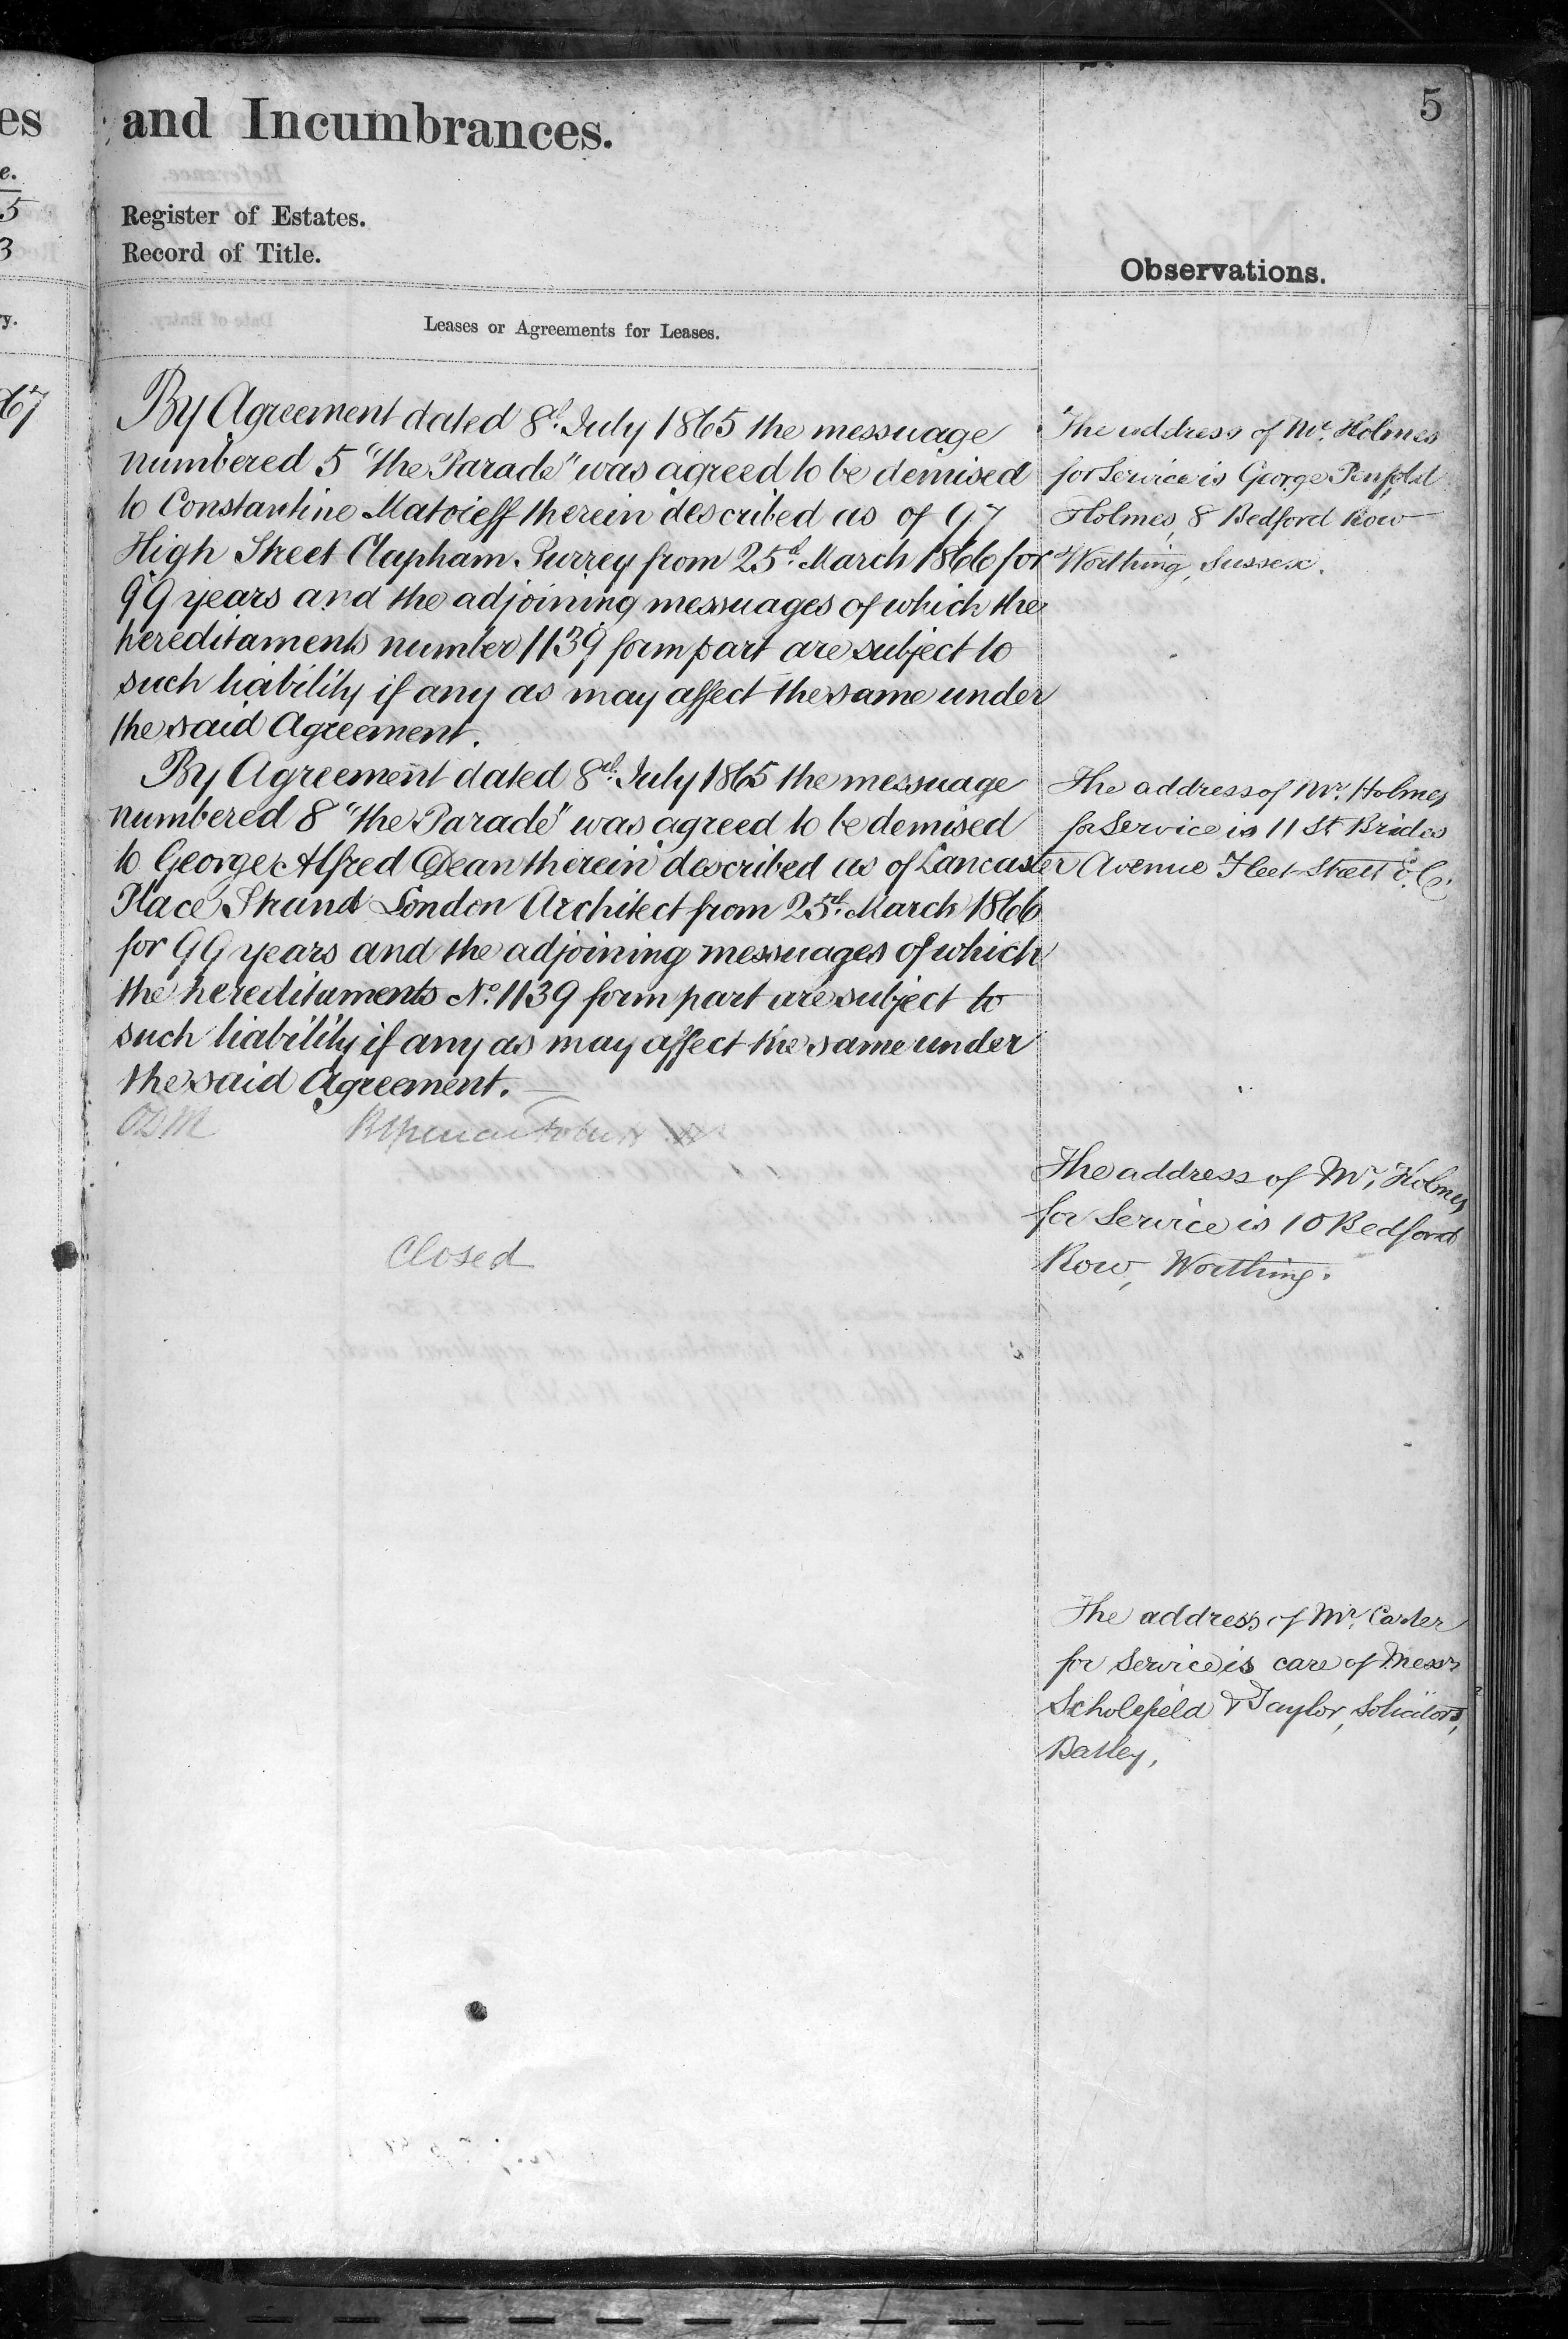 5
es
and Incumbrances.
e.
5
3
Register of Estates.
Record of Title.
Observations.
y.
Leases or Agreements for Leases.
67
By Agreement dated 8th. July 1865 the messuage
numbered 5 "the Parade" was agreed to be demised
to Constantine Matvieff therein described as of 97
High Street Clapham Surrey from 25th. March 1866 for
99 years and the adjoining messuages of which the
hereditaments number 1139 form part are subject to
such liability if any as may affect the same under
the said Agreement.
By Agreement dated 8th. July 1865 the messuage
numbered 8 "the Parade" was agreed to be demised
to George Alfred Dean therein described as of Lancaster
Place Strand London Architect from 25th. March 1866
for 99 years and the adjoining messuages of which
the hereditaments No. 1139 form part are subject to
such liability if any as may affect the same under
the said Agreement.
Closed
The address of Mr. Holmes
for Service is George Penfold
Holmes, 8 Bedford Row
Worthing, Sussex.
The address of Mr. Holmes
for Service is 11 St Brides
Avenue Fleet Street E.C.
The address of Mr. Holmes
for Service is 10 Bedford
Row, Worthing.
The address of Mr. Carter
for Service is care of Messrs
Scholefield & Taylor, Solicitors,
Batley,